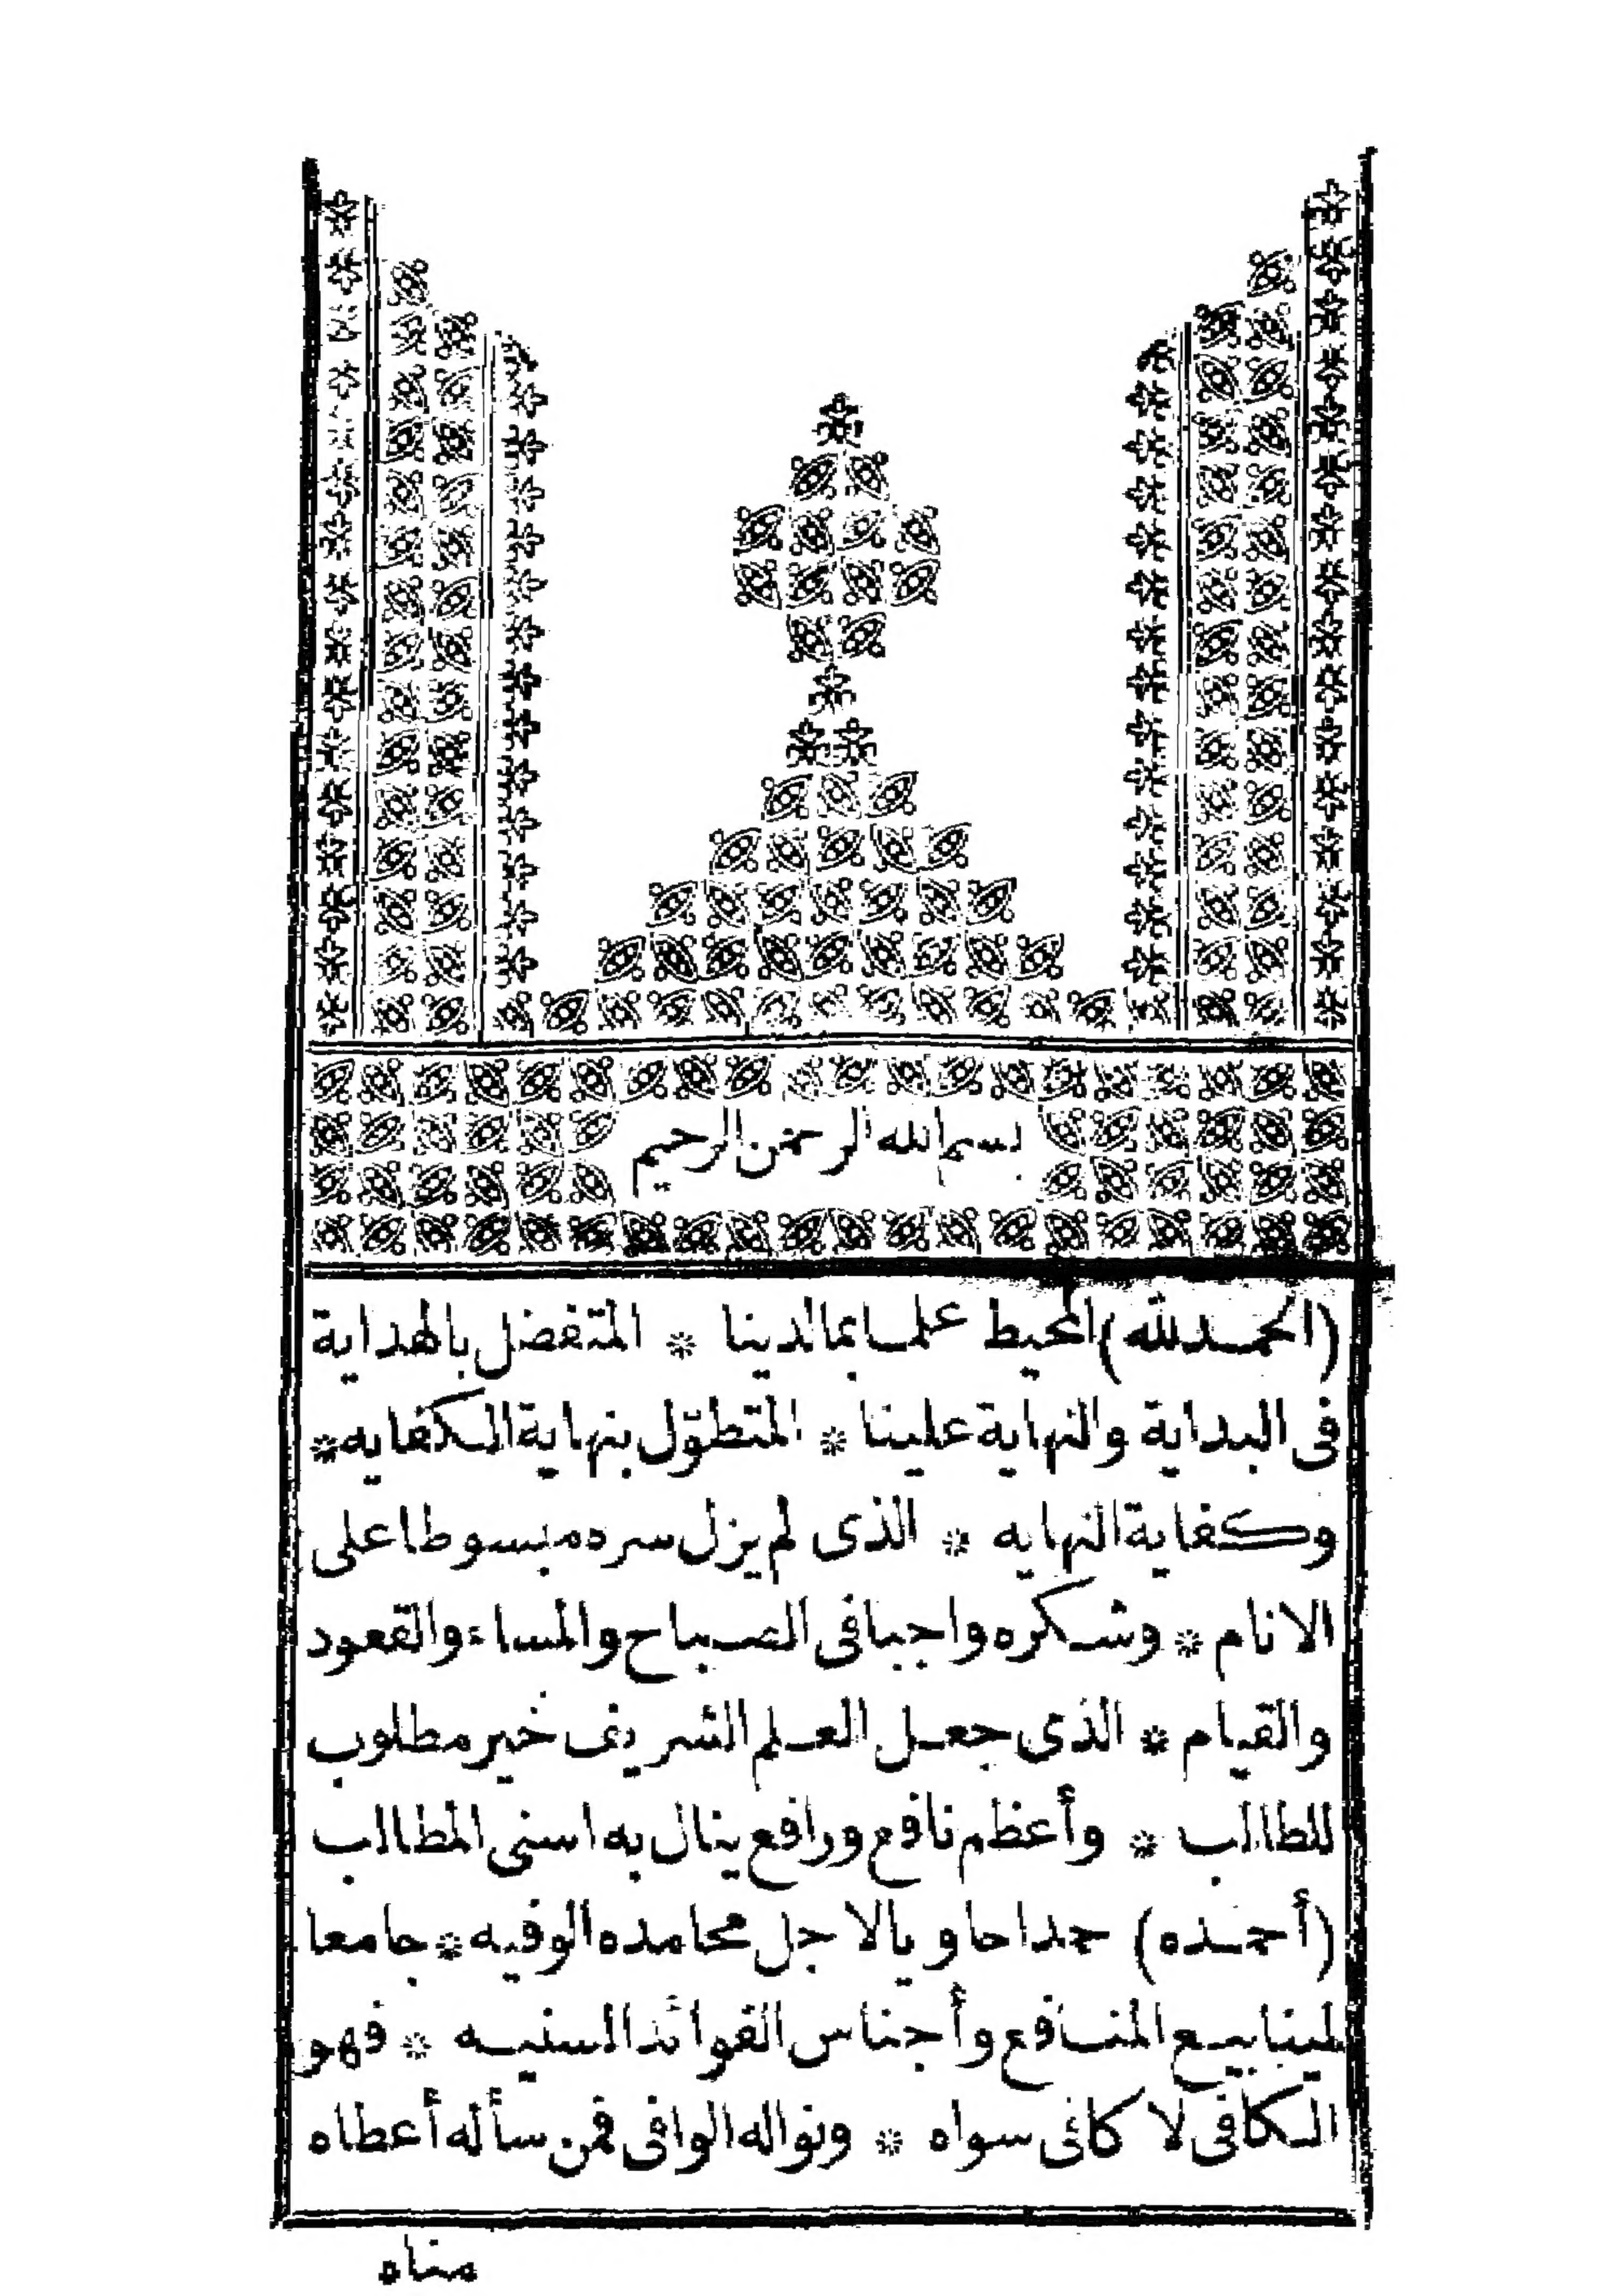 بسم الله الرحمن الرحيم
(الحمد لله) المحيط علما بما لدينا * المتفضل بالهداية
فى البداية والنهاية علينا * المتطوّل بنهاية الكفايه *
وكفاية النهايه * الذى لم يزل سره مبسوطا على
الانام * وشكره واجبا فى الصباح والمساء والقعود
والقيام * الذى جعل العلم الشريف خير مطلوب
للطالب * وأعظم نافع ورافع ينال به اسنى المطالب
(أحمده) حمدا حاويا لاجل محامده الوفيه * جامعا
لينابيع المنافع وأجناس الفوائد السنيه * فهو
الكافى لا كافى سواه * ونواله الوافى فمن سأله أعطاه
مناه